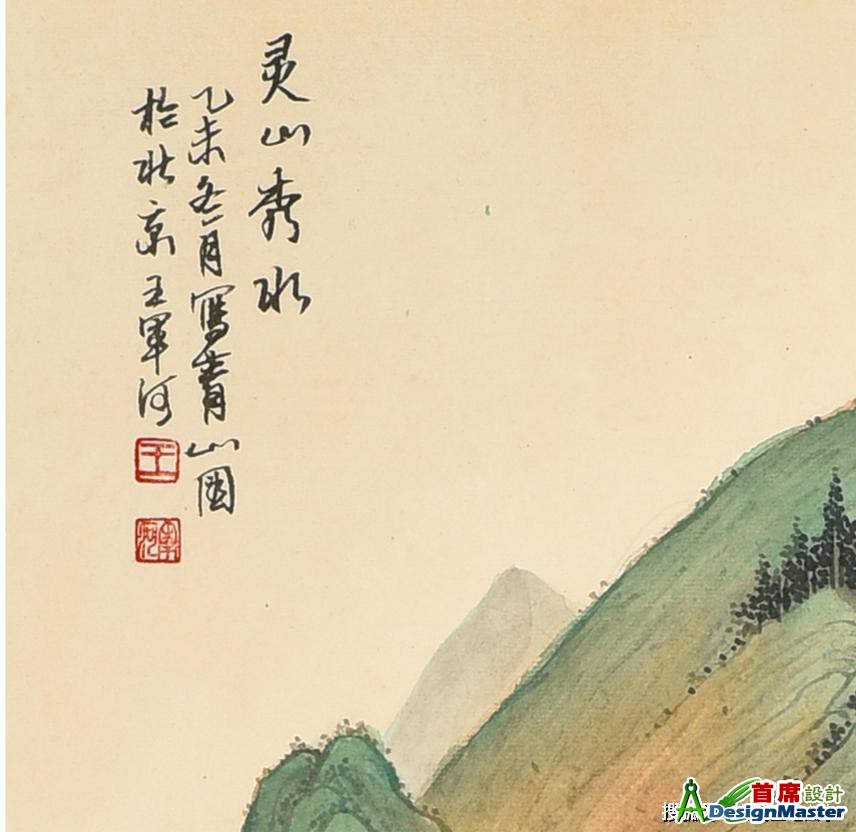 灵山秀水
乙未冬月寫青山图
於北京王军河
王
首席設計
ADesignMaster